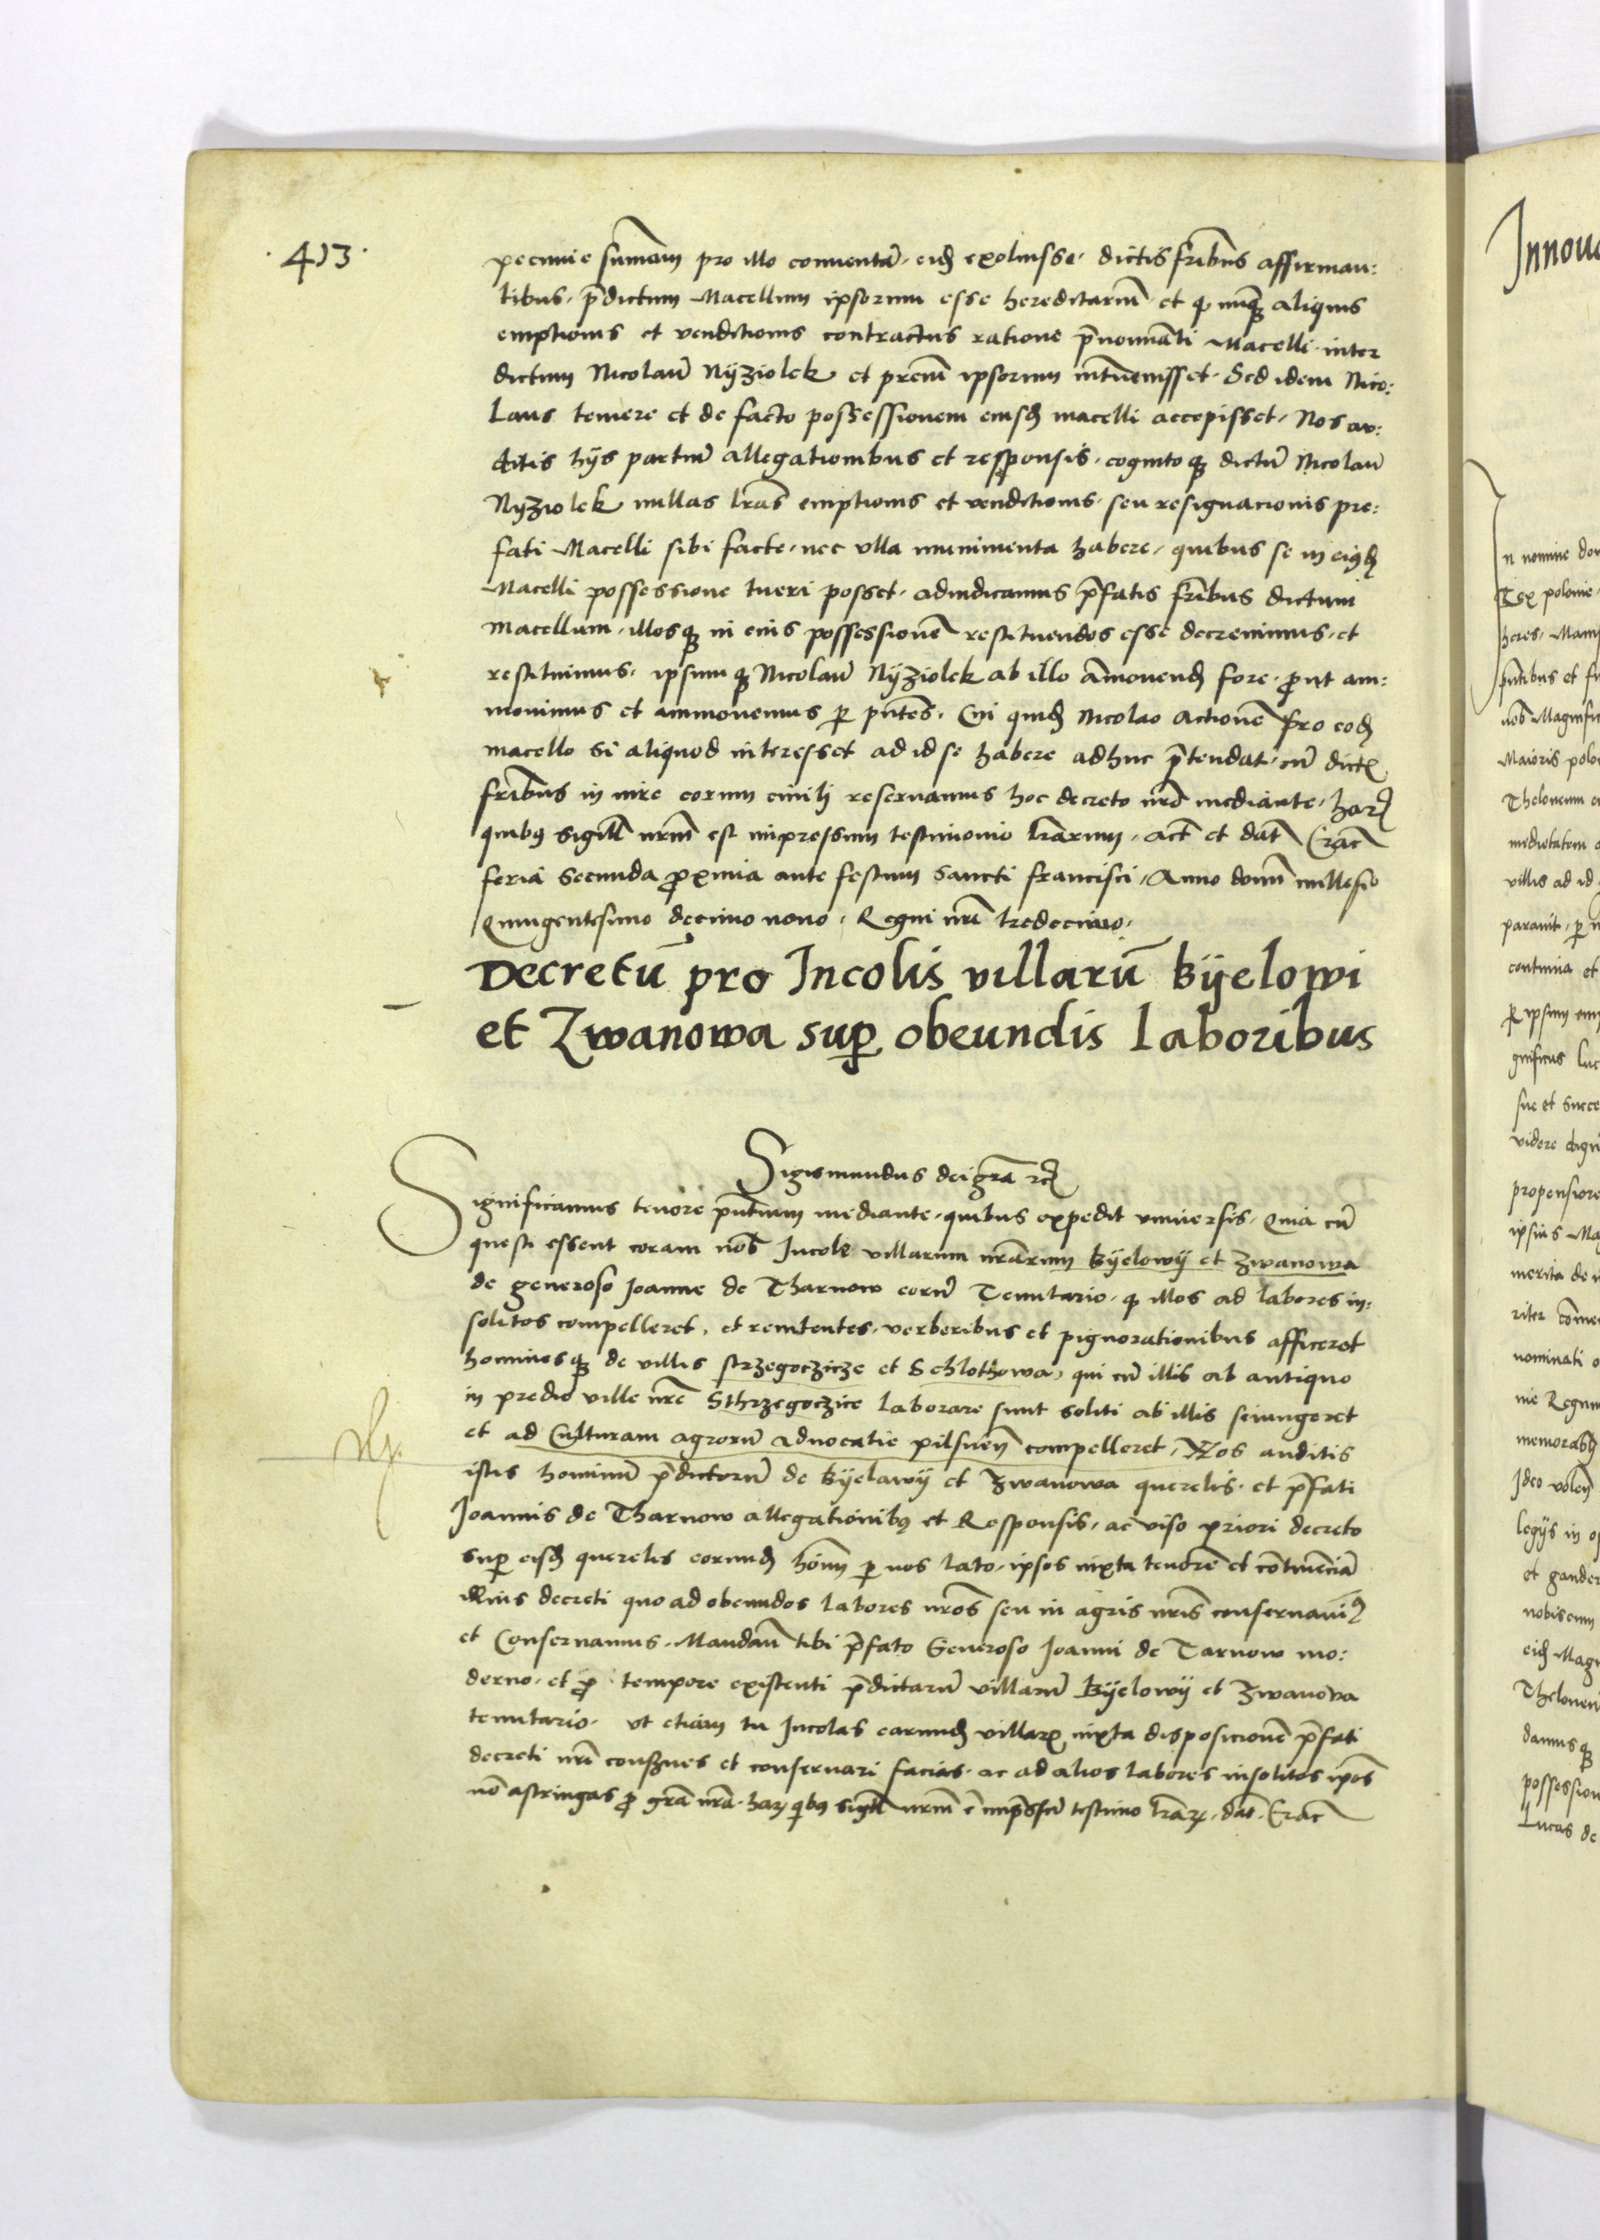 ·413·
pecunie sum̄am pro illo conuentā, eidꝫ exoluisse, dictis fr̄ibus affirman:
tibus, p̄dictum Macellum ipsorum esse hereditariū, et qꝫ nunꝗꝫ aliquis
emptionis et venditionis contractus ratione p̄nominati Macelli inter
dictum Nicolaū Nyziolek et p̄rem ipsorum interuenisset. Sed idem Nico:
laus temere et de facto possessionem eiusdꝫ macelli accepisset, Nos au:
ditis hijs partiū allegationibus et responsis, cognitoqꝫ dictū Nicolaū
Nyziolek nullas lr̄as emptionis et venditionis, seu resignacionis pre:
fati Macelli sibi facte, nec vlla munimenta habere, quibus se in eiꝰdꝫ
Macelli possessione tueri posset, adiudicamus p̄fatis fr̄ibus dictum
Macellum, illosqꝫ in eius possessionē restituendos esse decreuimus, et
restituimus, ipsumqꝫ Nicolaū Nyziolek ab illo am̄ouendꝫ fore, ꝓut am:
mouimus et ammouemus ꝑ pn̄tes. Cui quidꝫ Nicolao Actionē pro eodꝫ
macello si aliquod interesset ad id se habere adhuc p̄tendat, cū dictꝭ
fr̄ibus in iure eorum ciuili reseruamus hoc decreto nr̄o mediante, harꝫ
quibꝰ sigill̄ nr̄m est impressum testimonio lr̄arum. Act̄ et dat̄ Crac̄
feria secunda ꝓxima ante festum Sancti francisci, Anno domī millesīo
Quingentesimo decimo nono. Regni nr̄i tredecimo.
Decretū pro Incolis villarū Byelowi
et Zwanowa suꝑ obeundis laboribus
Sigismundus dei gr̄a rcꝫ
Significamus tenore pn̄tium mediante, quibus expedit vniuersis, Quia cū
questi essent coram nob̄ Incole villarum nr̄arum Byelowy et Zwanowa
de generoso Joanne de Tharnow eorū Tenutario, qꝫ illos ad labores in:
solitos compelleret, et renitentes, verberibus et pignorationibus afficeret
hominesqꝫ de villis strzegoczicze et Schlothowa, qui cū illis ab antiquo
in predio ville nr̄e Sthrzegoczice laborare sunt soliti ab illis seiungeret
et ad Culturam agrorū aduocatie pilsnen̄ compelleret, Nos auditis
istis hominū p̄dictorū de Byelawy et Zwanowa querelis, et p̄fati
Joannis de Tharnow allegationibꝰ et Responsis, ac viso priori decreto
suꝑ eisdꝫ querelis eorundꝫ hoīm ꝑ nos lato, ipsos iuxta tenorē et cōtinenciā
illius decreti quo ad obeundos labores nr̄os seu in agris nr̄is conseruauimꝰ
et Conseruamus. Mandan̄ tibi p̄fato Generoso Joanni de Tarnow mo:
derno, et ꝓ tempore existenti p̄dictarū villarū Byelowy et Zwanowa
tenutario, vt etiam tu Incolas earundꝫ villarꝫ iuxta disposicionē p̄fati
decreti nr̄i conserues et conseruari facias, ac ad alios labores insolitos ipsos
nō astringas ꝓ gr̄a nr̄a. harꝫ qibꝰ sigill̄ nr̄m ē imp̄ssū testimō lr̄arꝫ. Dat. Crac̄